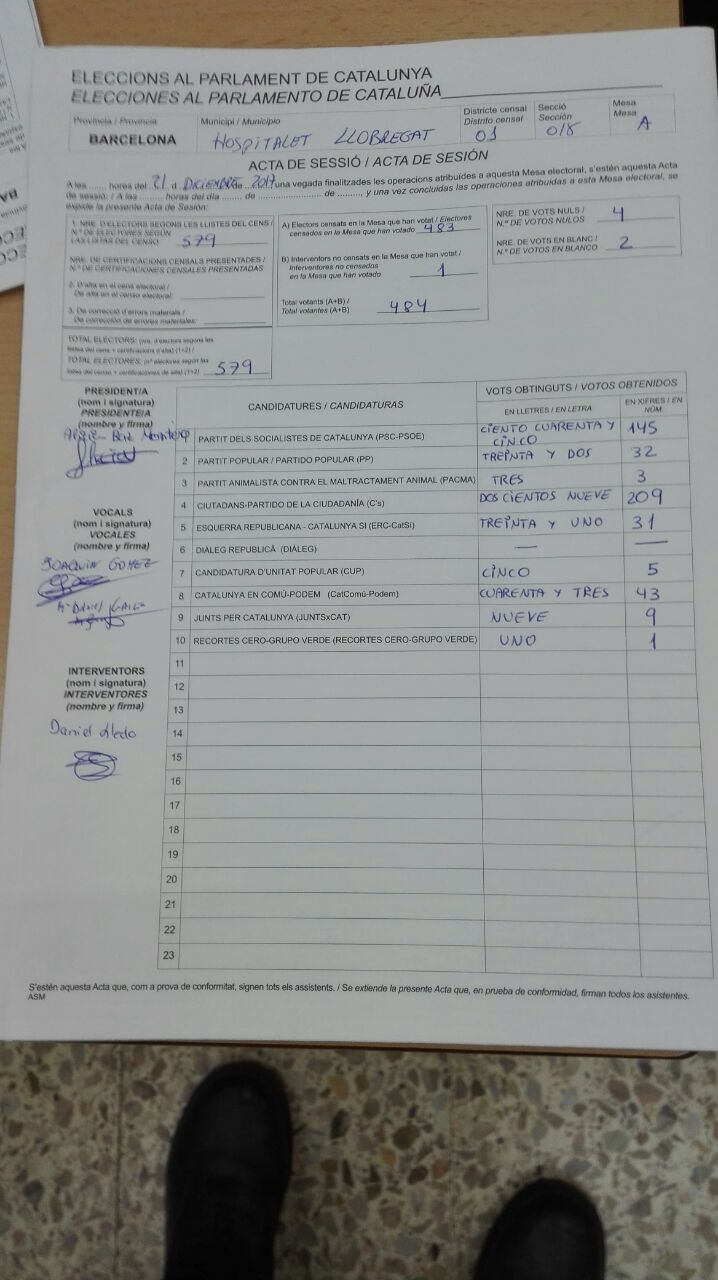 ELECCIONS AL PARLAMENT DE CATALUNYA
ELECCIONES AL PARLAMENTO DE CATALUÑA
Provincia / Provincia
BARCELONA
Municipi / Municipio
HOSPITALET LLOBREGAT
Districte censal
Distrito censal
01
Secció
Sección
018
Mesa
Mesa
A
ACTA DE SESSIÓ / ACTA DE SESIÓN
A les ....... hores del 21 d DICIEMBRE de 2017 una vegada finalitzades les operacions atribuïdes a aquesta Mesa electoral, s'estén aquesta Acta
de sessió. / A las ........ horas del día ....... de .......................... de ........., y una vez concluidas las operaciones atribuidas a esta Mesa electoral, se
expide la presente Acta de Sesión:
1. NRE. D'ELECTORS SEGONS LES LLISTES DEL CENS /
N.º DE ELECTORES SEGÚN
LAS LISTAS DEL CENSO 579
NRE. DE CERTIFICACIONS CENSALS PRESENTADES /
N.º DE CERTIFICACIONES CENSALES PRESENTADAS
2. D'alta en el cens electoral: /
De alta en el censo electoral:
3. De correcció d'errors materials: /
De corrección de errores materiales:
TOTAL ELECTORS: (nre. d'electors segons les
llistes del cens + certificacions d'alta) (1+2) /
TOTAL ELECTORES: (nº electores según las
listas del censo + certificaciones de alta) (1+2) 579
A) Electors censats en la Mesa que han votat / Electores
censados en la Mesa que han votado 483
B) Interventors no censats en la Mesa que han votat /
Interventores no censados
en la Mesa que han votado 1
Total votants (A+B) /
Total votantes (A+B) 484
NRE. DE VOTS NULS /
N.º DE VOTOS NULOS 4
NRE. DE VOTS EN BLANC /
N.º DE VOTOS EN BLANCO 2
PRESIDENT/A
(nom i signatura)
PRESIDENTE/A
(nombre y firma)
VOCALS
(nom i signatura)
VOCALES
(nombre y firma)
JOAQUIN GOMEZ
INTERVENTORS
(nom i signatura)
INTERVENTORES
(nombre y firma)
Daniel
CANDIDATURES / CANDIDATURAS
VOTS OBTINGUTS / VOTOS OBTENIDOS
EN LLETRES / EN LETRA
EN XIFRES / EN NÚM.
1 PARTIT DELS SOCIALISTES DE CATALUNYA (PSC-PSOE) CIENTO CUARENTA Y CINCO 145
2 PARTIT POPULAR / PARTIDO POPULAR (PP) TREINTA Y DOS 32
3 PARTIT ANIMALISTA CONTRA EL MALTRACTAMENT ANIMAL (PACMA) TRES 3
4 CIUTADANS-PARTIDO DE LA CIUDADANÍA (C's) DOSCIENTOS NUEVE 209
5 ESQUERRA REPUBLICANA - CATALUNYA SÍ (ERC-CatSí) TREINTA Y UNO 31
6 DIÀLEG REPUBLICÀ (DIÀLEG) — —
7 CANDIDATURA D'UNITAT POPULAR (CUP) CINCO 5
8 CATALUNYA EN COMÚ-PODEM (CatComú-Podem) CUARENTA Y TRES 43
9 JUNTS PER CATALUNYA (JUNTSxCAT) NUEVE 9
10 RECORTES CERO-GRUPO VERDE (RECORTES CERO-GRUPO VERDE) UNO 1
11
12
13
14
15
16
17
18
19
20
21
22
23
S'estén aquesta Acta que, com a prova de conformitat, signen tots els assistents. / Se extiende la presente Acta que, en prueba de conformidad, firman todos los asistentes.
ASM